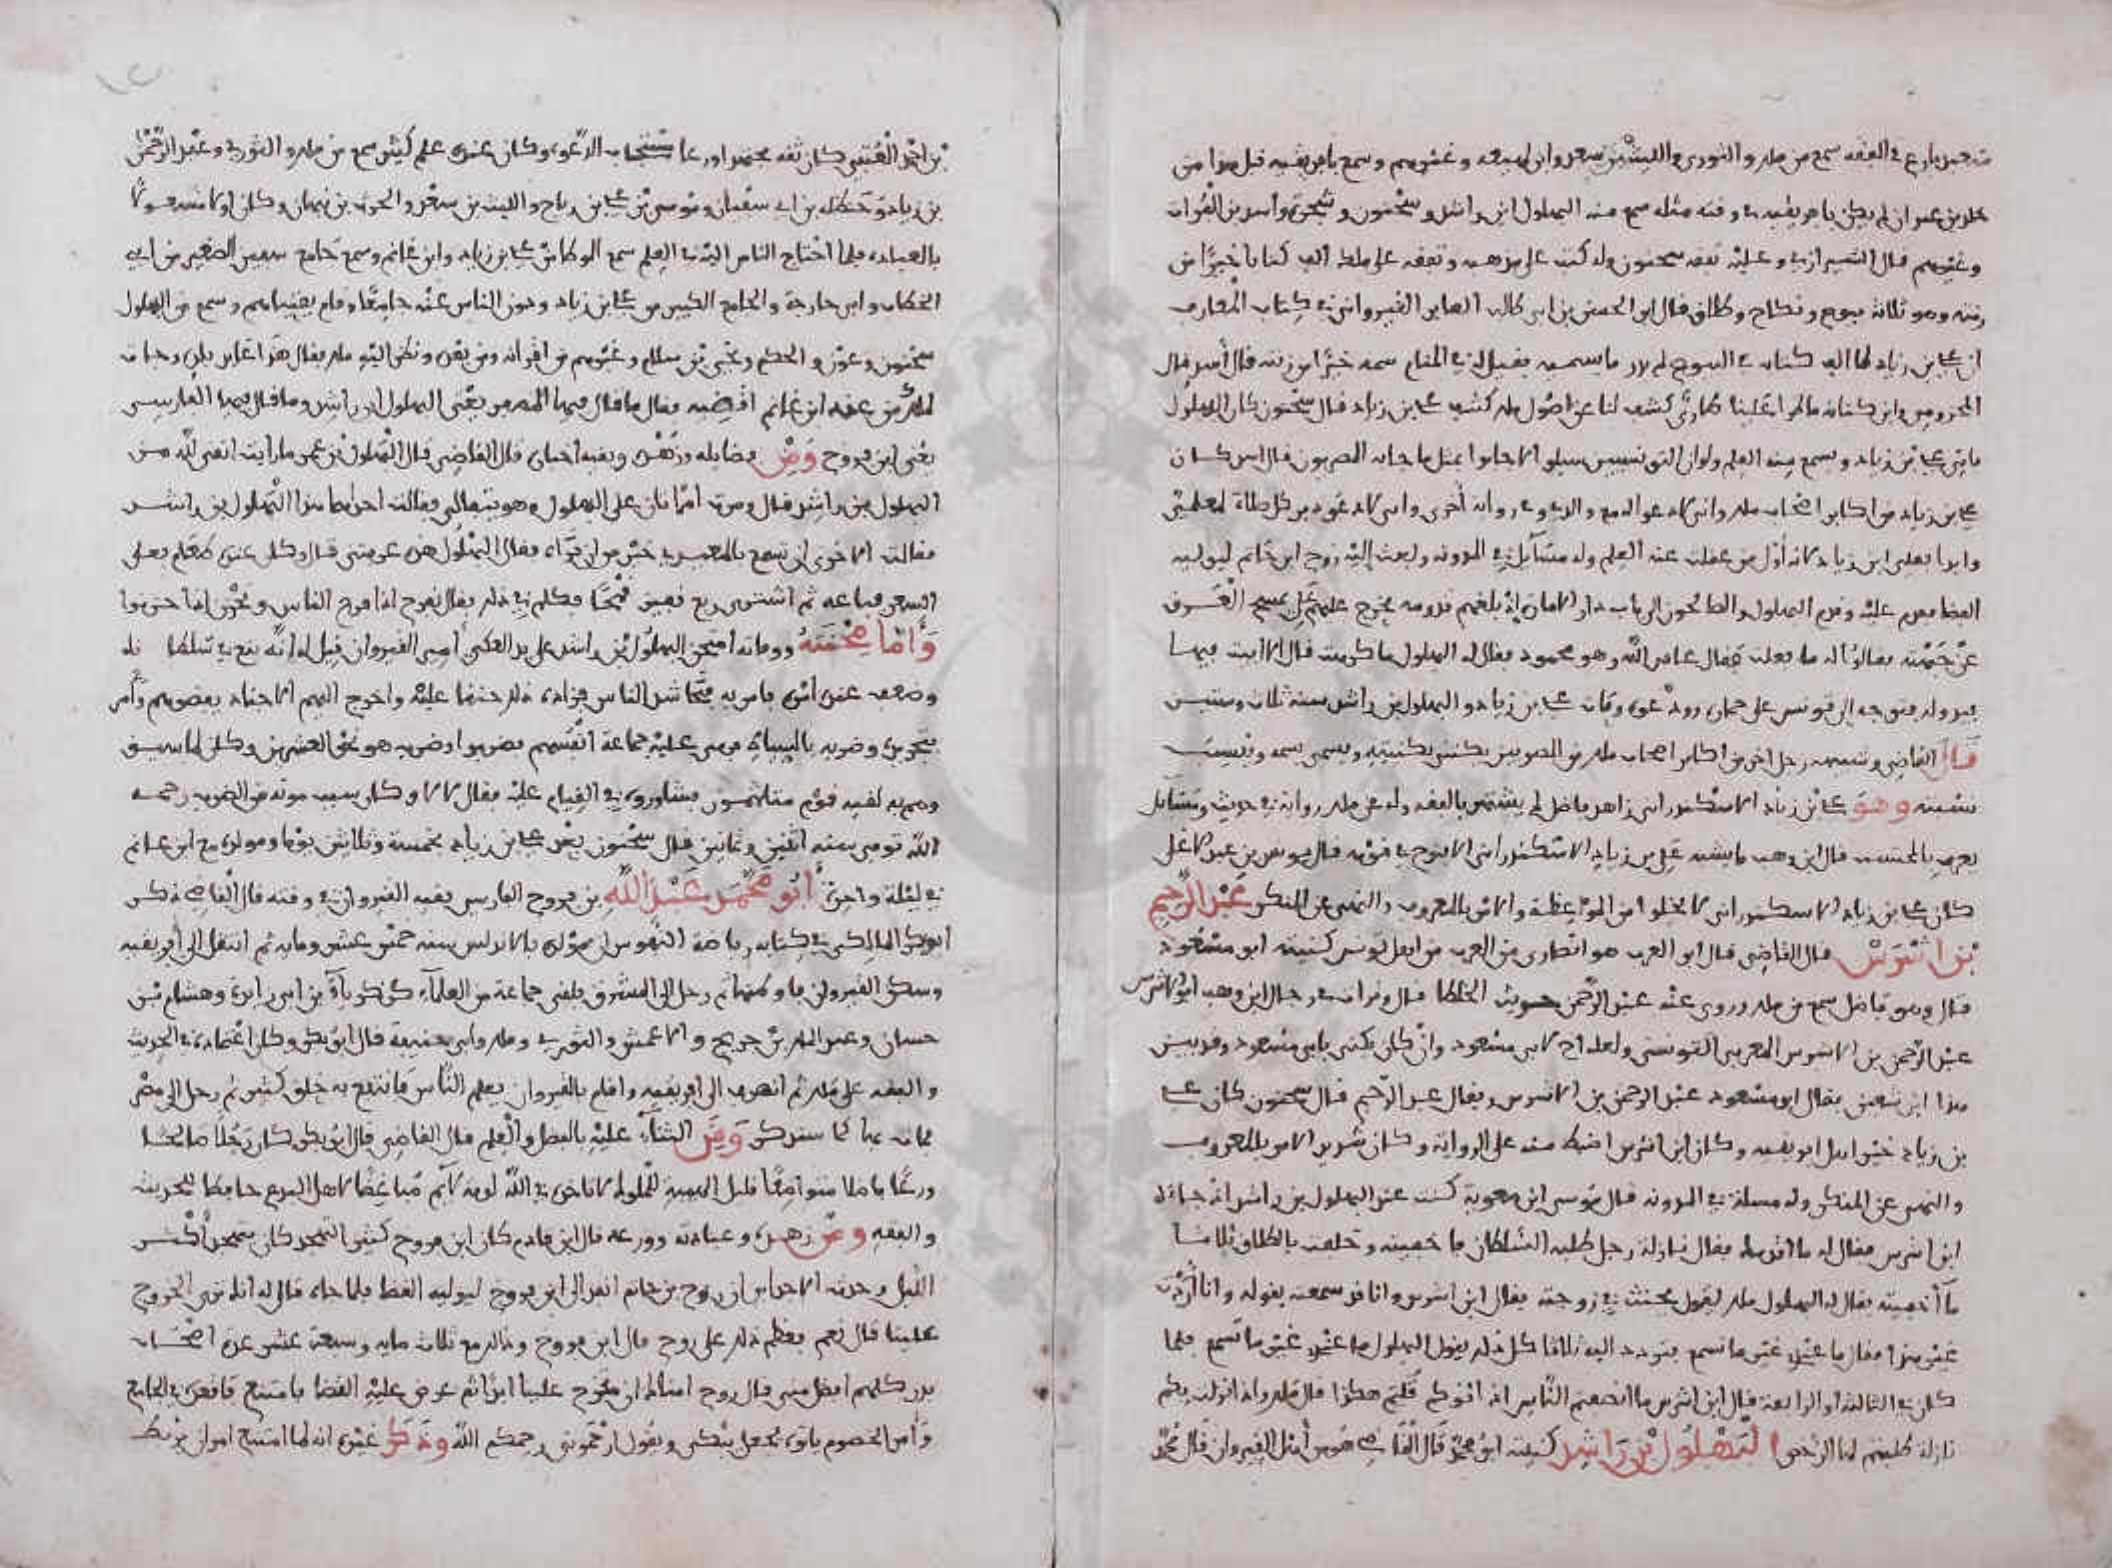 متعبد بارع في الفقه سمع من ملك والثوري والليث بن سعد وابن لهيعة وغيرهم وسمع بافريقية قبل هذا من
خلد بن عمران لم يكن بافريقية في وقته مثله سمع منه البهلول ابن راشد وسحنون وشجرة واسد بن الفرات
وغيرهم قال الشيرازي وعليه تفقه سحنون وله كتب على مذهبه وتفقه على ملك الف كتابا خير من
زنته وهو ثلاثة بيوع ونكاح وطلاق قال ابو الحسن بن ابي طالب العابر القيرواني في كتاب المعارف
ان علي بن زياد لما الف كتابه في البيوع لم يدر ما يسميه فقيل له في المنام سمه خير من زنته قال أسد قال
المخزومي وابن كنانة ما طرا علينا طار كشف لنا عن اصول ملك كشف علي بن زياد قال سحنون كان البهلول
ياتي علي بن زياد ويسمع منه العلم ولو ان التونسيين سيلوا لاجابوا بمثل ما جاب المصريون قال اسد كان
علي بن زياد من اكابر اصحاب ملك واني لادعو الله مع والدي وفي رواية أخرى واني لادعو دبر كل صلاة لمعلمي
وابدا بعلي ابن زياد لانه أول من عقلت عنه العلم وله مسآيل في المدونة وبعث إليه روح ابن حاتم ليوليه
القضا
عن جبهته فقالوا له ما فعلت فقال عافى الله وهو محمود فقال له البهلول ما كرهت قال الا ابيت فيها
فيرو له فتوجه الى تونس على حماره وودعوه ومات علي بن زياد والبهلول بن راشد سنة ثلاث وستين
قال القاضي ويشبهه رجل اخر من اكابر اصحاب ملك من المصريين يكتنى بكنيته ويسمى بسمه وينسب
بنسبته وهو علي بن زياد الاسكندراني زاهد فاضل لم يشتهر بالفقه وله عن ملك رواية في حديث ومسآيل
يعرف بالمحتسب قال ابن وهب ما يشبه علي بن زياد الاسكندراني الا بنوح في قومه قال يونس بن عبد الاعلى
كان علي بن زياد الاسكندراني لا يخلوا من الموعظة والامر بالمعروف والنهي عن المنكر عبد الرحيم
بن اشرس قال القاضي قال ابو العرب هو انصاري من العرب من اهل تونس كنيته ابو مسعود
قال وهو فاضل سمع من ملك وروى عنه عبد الرحمن حديث الخلطا قال وقرات في رجال ابن وهب ابو الاشرس
عبد الرحمن بن الاشرس المغربي التونسي ولعله اخ لابي مسعود وان كان يكنى بابي مسعود وقد بين
هذا ابن شعبن فقال ابو مسعود عبد الرحمن بن الاشرس ويقال عبد الرحيم قال سحنون كان علي
بن زياد خير اهل افريقية وكان ابن اشرس احفظ منه على الرواية وكان شديد الامر بالمعروف
والنهي عن المنكر وله مسلة في المدونة قال موسى ابن معوية كنت عند البهلول بن راشد اذ جاءه
ابن اشرس فقال له ما اقدمك فقال نازلة رجل طلبه السلطان فاخفيته وحلفت بالطلاق ثلاثا
مآ أخفيته فقال له البهلول ملك يقول يحنث في زوجته فقال ابن اشرس وانا قد سمعته يقوله وانا أردت
غير هذا فقال ما عندي غير ما تسمع فتردد اليه ثلاثا كل ذلك يقول البهلول ما عندي غير ما تسمع فلما
كان في الثالثة او الرابعة قال ابن اشرس ما انصفتم الناس اذ اتوكم قلتم هكذا قال ملك واذا نزلت بكم
نازلة طلبتم لها الرخص البهلول بن راشد كنيته ابو عمرو قال القاضي هو من أهل القيروان قال محمد
بن احمد العتبي كان ثقة مجتهدا ورعا مستجاب الدعوة وكان عنده علم كثير سمع من ملك والثوري وعبد الرحمن
بن زياد وحنظلة بن ابي سفيان وموسى بن علي بن رباح والليث بن سعد والحرث بن نبهان وكان اولا مشغولا
بالعبادة فلما احتاج الناس اليه في العلم سمع الموطا من علي بن زياد وابن غانم وسمع جامع سفين الصغير من ابي
الخطاب وابي خارجة والجامع الكبير من علي بن زياد ودون الناس عنه جامعا وقام بفتياهم وسمع من البهلول
سحنون وعون والحكم ويحيى بن سلام وغيرهم من اقرانه ومن بعده ونظر اليه ملك فقال هذا عابد بلده وجات
لملك من عند ابن غانم اقضية فقال ما قال فيها المصفر يعني البهلول ابن راشد وما قال فيها الفارسي
يعني ابن فروخ ومن فضايله وزهده وبقية اخباره قال القاضي قال البهلول بن عمر ما رايت اتقى لله من
البهلول بن راشد قال ومرت امراتان على البهلول وهو يتمالى فقالت احداهما هذا البهلول بن راشد
فقالت الاخرى ان تسمع بالمعيدي خير من ان تراه فقال البهلول هذه عرفتني قال وكان عنده طعام فغلى
السعر فباعه ثم اشترى ربع قفيز قمحا فكلم في ذلك فقال نفرح اذا فرح الناس ونحزن اذا حزنوا
وأما محنته ووفاته امتحن البهلول بن راشد على يد العكي أمير القيروان قيل له انه يقع في سلطانك
وضعف عنده امره فامر به فتحاشد الناس فزاده ذلك حنقا عليه واخرج اليهم الاجناد بعضهم وأمر
بتجريده وضربه بالسياط فرمى عليه جماعة انفسهم فضربوا وضرب هو نحو العشرين وكان لما سيق
ومر به لقيه قوم متلثمون يشاورونه في القيام عليه فقال لا لا وكان سبب موته من الضرب رحمه
الله توفي سنة اثنين وثمانين قال سحنون بعد علي بن زياد بخمسة وثلاثين يوما ومولده مع ابن غانم
في ليلة واحدة أبو محمد عبد الله بن فروخ الفارسي فقيه القيروان في وقته قال القاضي ذكر
ابو بكر المالكي في كتابه رياضة النفوس ان مولده بالاندلس سنة خمس عشر وماية ثم انتقل الى أفريقية
وسكن القيروان فاوطنها ثم رحل الى المشرق فلقي جماعة من العلمآء كزكريآء بن ابي زايدة وهشام بن
حسان وعبد الملك بن جريج والاعمش والثوري وملك وأبي حنيفة قال ابو بكر وكان اعتماده في الحديث
والفقه على ملك ثم انصرف الى افريقية واقام بالقيروان يعلم الناس فانتفع به خلق كثير ثم رحل الى مصر
فمات بها كما سنذكره ومن الثناء عليه بالفضل والعلم قال القاضي قال ابو بكر كان رجلا صالحا
ورعا فاضلا متواضعا قليل الهيبة للملوك لا تاخذه في الله لومة لآيم مباغضا لاهل البدع حافظا للحديث
والفقه ومن زهده وعبادته وورعه قال ابن قادم كان ابن فروخ كثير التهجد كان يتهجد أكثر
الليل وحدثه الاحدابي ان روح بن حاتم انفذ الى ابن فروخ ليوليه القضا فلما جاه قال له انك ترى الخروج
علينا قال نعم فعظم ذلك على روح قال ابن فروخ وذلك مع ثلاث ماية وسبعة عشر عدة اصحاب
بدر كلهم افضل مني قال روح امناك ان تخرج علينا ابدا ثم عرض عليه القضا فامتنع فاقعده في الجامع
وأمر الخصوم ياتوه فجعل يبكي ويقول ارحموني رحمكم الله وذكر غيره انه لما امتنع امر ان يربط